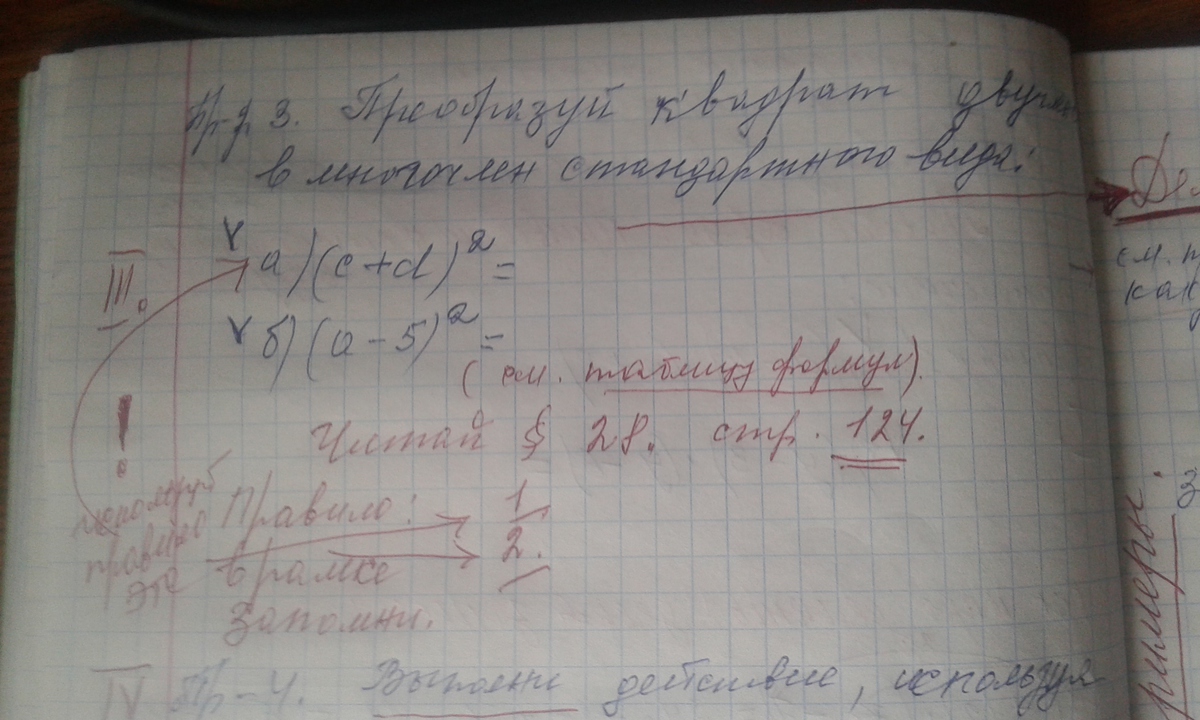 Пр-р 3. Преобразуй квадрат двучл
в многочлен стандартного вида:
Де
III.
а) (c+d)² =
см. п
как
б) (a-5)² =
(см. таблицу формул).
Читай § 28. стр. 124.
!
используй
правило
это
Правило: 1
в рамке 2.
Запомни.
римеры.
IV Пр-4. Выполни действие, используя